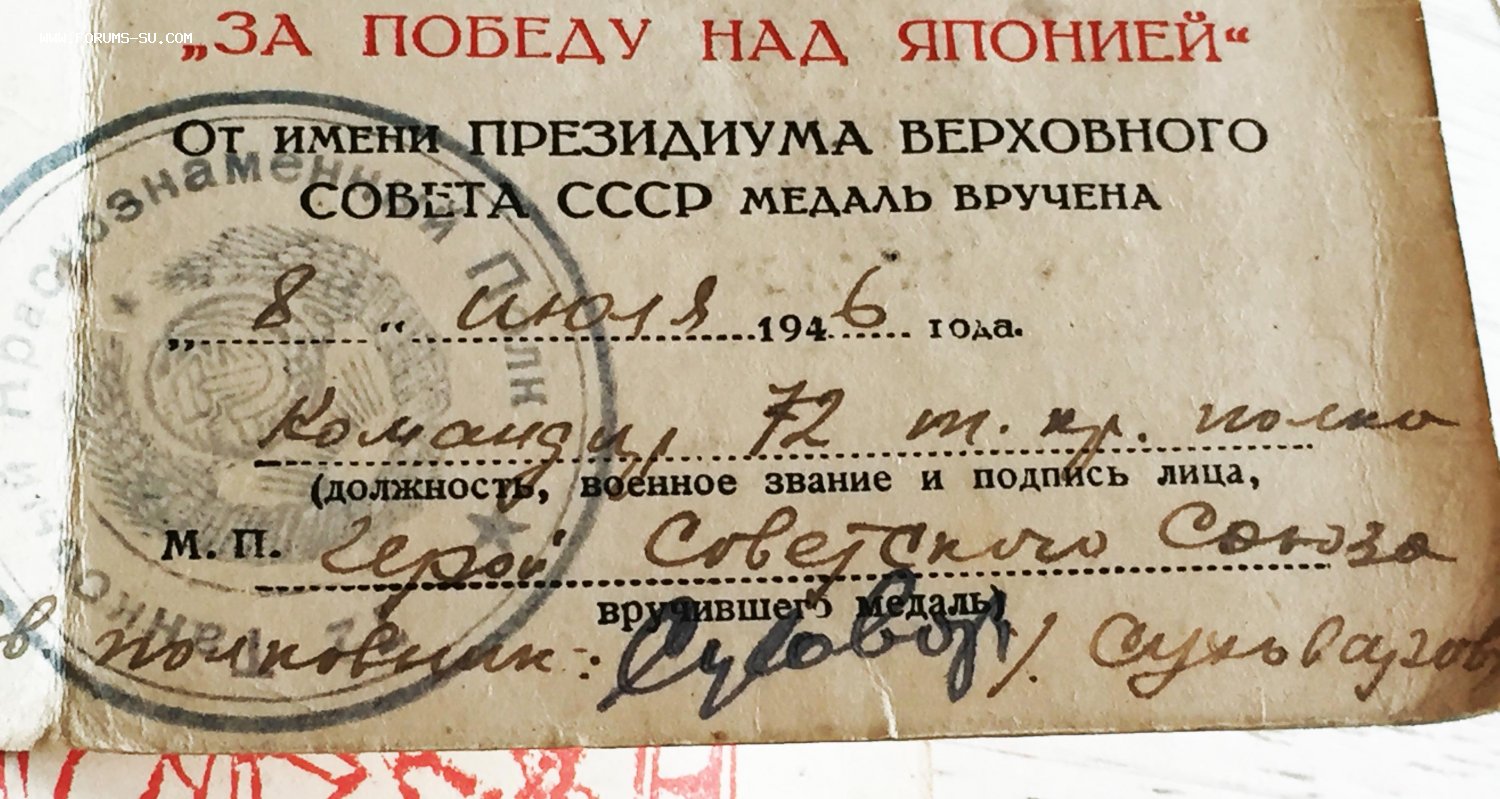 www.FORUMS-SU.COM
„ЗА ПОБЕДУ НАД ЯПОНИЕЙ“
От имени ПРЕЗИДИУМА ВЕРХОВНОГО
СОВЕТА СССР МЕДАЛЬ ВРУЧЕНА
„ 8 “ июля 1946 года.
Командир 72 т. кр. полка
(должность, военное звание и подпись лица,
М. П. Герой Советского Союза
вручившего медаль)
гв. полковник:
Краснознаменный Полк